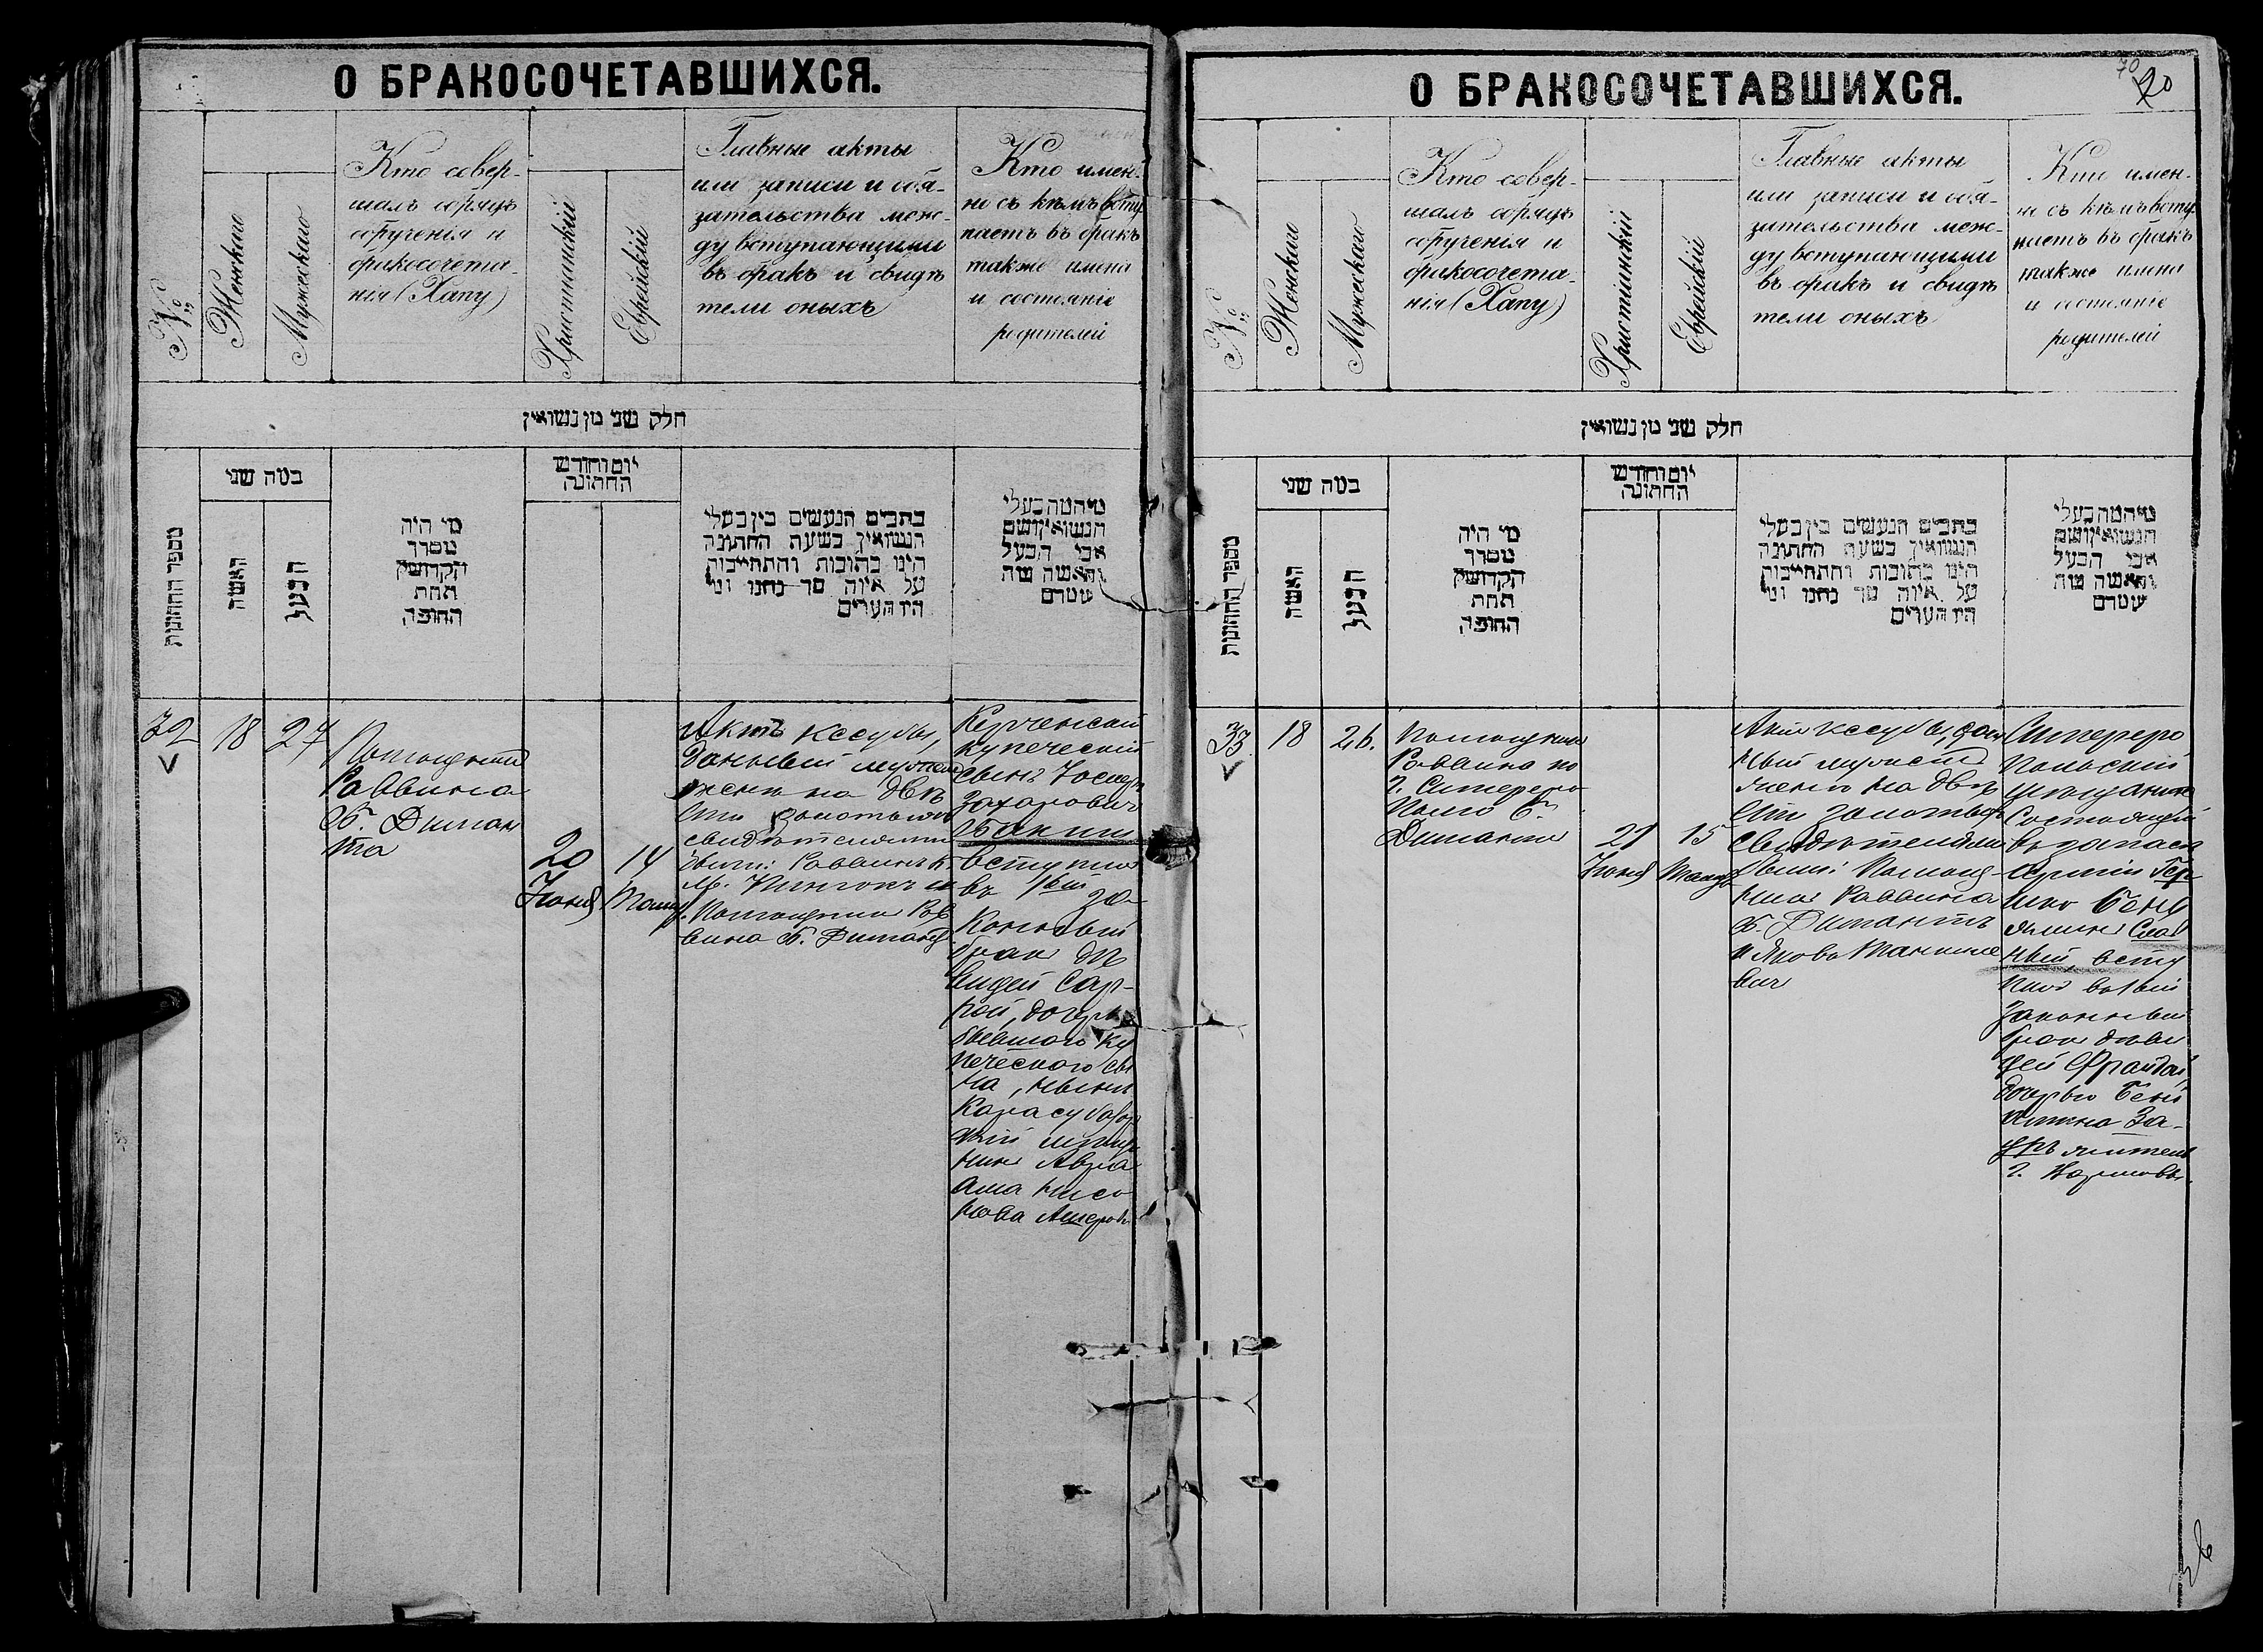 О БРАКОСОЧЕТАВШИХСЯ.
№
Женскаго
Мужескаго
Кто совер-
шалъ обрядъ
обрученія и
бракосочета-
нія (Хапу)
Христіанскій
Еврейскій
Главные акты
или записи и обя-
зательства меж-
ду вступающими
въ бракъ и свидѣ
тели оныхъ
Кто имен-
но съ кѣмъ всту
паетъ въ бракъ
также имена
и состояніе
родителей
חלק שני מן נשואין
מספר החתונות
במה שני
האשה
הבעל
מי היה
מסדר
הקדושין
תחת
החופה
יום וחודש
החתונה
כתבים הנעשים בין בעלי
הנשואין בשעת החתונה
היינו כתובות והתחייבות
על איזה סך נתנו ומי
היו העדים
מי המה בעלי
הנשואין ושם
אבי הבעל
והאשה מה
שמם
32
18
27
Помощникъ
Раввина
Б. Диман
та
20
Іюня
14
Тамуз
Актъ кесубы,
данный мужем
жене на двѣ
сти золотыхъ
свидѣтелями
были: Раввинъ
М. и
Помощникъ Рав
вина Б. Димантъ
Керченскій
купеческій
сынъ Іосифъ
Захаровичъ
вступилъ
въ 1ый за-
конный
бракъ съ дѣ
вицей Сар-
рой, дочерью
бывшаго ку
печескаго сы
на, нынѣ
Карасубазар
скій мѣща
нинъ Авра
ама Нисо
нова
О БРАКОСОЧЕТАВШИХСЯ.
70
20
№
Женскаго
Мужескаго
Кто совер-
шалъ обрядъ
обрученія и
бракосочета-
нія (Хапу)
Христіанскій
Еврейскій
Главные акты
или записи и обя-
зательства меж-
ду вступающими
въ бракъ и свидѣ
тели оныхъ
Кто имен-
но съ кѣмъ всту
паетъ въ бракъ
также имена
и состояніе
родителей
חלק שני מן נשואין
מספר החתונות
במה שני
האשה
הבעל
מי היה
מסדר
הקדושין
תחת
החופה
יום וחודש
החתונה
כתבים הנעשים בין בעלי
הנשואין בשעת החתונה
היינו כתובות והתחייבות
על איזה סך נתנו ומי
היו העדים
מי המה בעלי
הנשואין ושם
אבי הבעל
והאשה מה
שמם
33
18
26.
Помощникъ
Раввина по
г. Симферо
полю Б.
Димантъ
21
Іюня
15
Тамузъ
Актъ кесубы, дан
ный мужемъ
жене на двѣ
сти золотыхъ
Свидѣтелями
были: Помощ-
никъ Раввина
Б. Димантъ
и Яковъ
вич
Симферо
польскій
мѣщанинъ
Состоящій
въ запасѣ
арміи Гер
шко Бень
яминъ Слав
ный, всту
пилъ въ 1ый
законный
бракъ съ дѣви
цей Фрайдой,
дочерью Бень
ямина За-
жител
г.